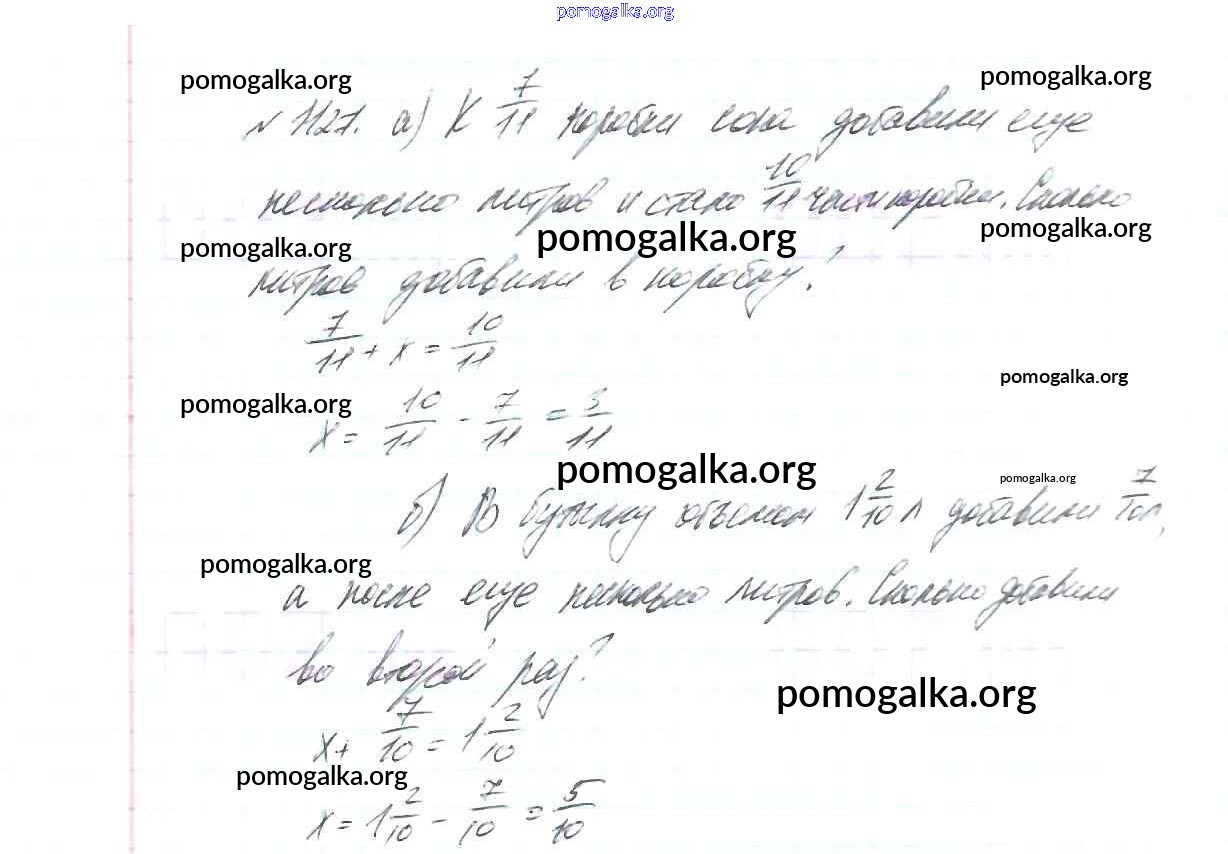 pomogalka.org
pomogalka.org pomogalka.org
№ 1127. а) К 7/11 коробки сока добавили еще
несколько литров и стало 10/11 части коробки. Сколько
pomogalka.org pomogalka.org pomogalka.org
литров добавили в коробку?
7/11 + x = 10/11
pomogalka.org
pomogalka.org
x = 10/11 - 7/11 = 3/11
pomogalka.org pomogalka.org
б) В бутылку объемом 1 2/10 л добавили 7/10 л,
pomogalka.org
а после еще несколько литров. Сколько добавили
во второй раз?
pomogalka.org
x + 7/10 = 1 2/10
pomogalka.org
x = 1 2/10 - 7/10 = 5/10